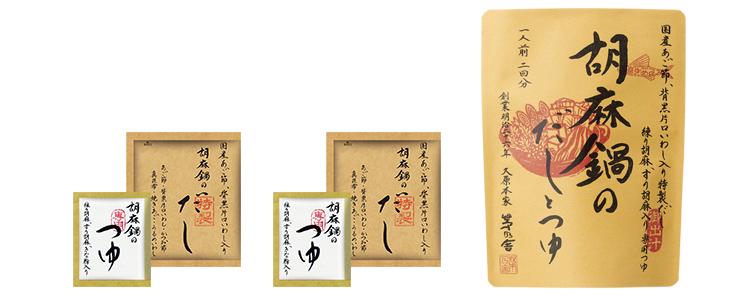 胡麻鍋の
つゆ
専用
練り胡麻、すり胡麻、きな粉入り
国産あご節、背黒片口いわし入り
胡麻鍋の
だし
特製
胡麻鍋の
つゆ
専用
練り胡麻、すり胡麻、きな粉入り
国産あご節、背黒片口いわし入り
胡麻鍋の
だし
特製
国産あご節、背黒片口いわし入り特製だし
練り胡麻 すり胡麻入り 専用つゆ
胡麻鍋の
だしとつゆ
一人前 二回分
創業明治二十六年 久原本家 茅乃舎